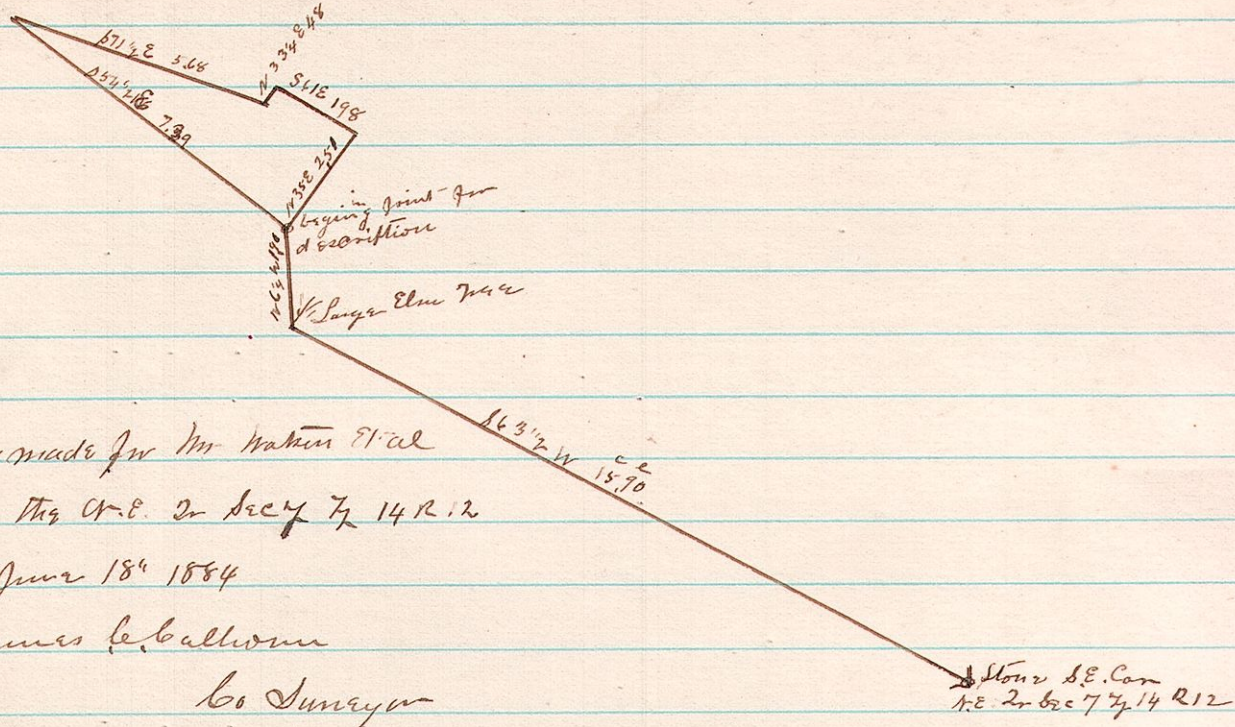 S71½E 5.68
N 33¼ E 48
S61E 198
S54½E
7.39
N35E 2.51
in
beging point for
description
N6½W 190
Large Elm Tree
S63½ W c e
15,90
made for Mr Et al
the N.E. Qr Sec 7 Tp 14 R. 12
June 18" 1884
C. Calhoun
Co Surveyor
Stone S.E. Cor
N.E. Qr Sec 7 Tp 14 R 12